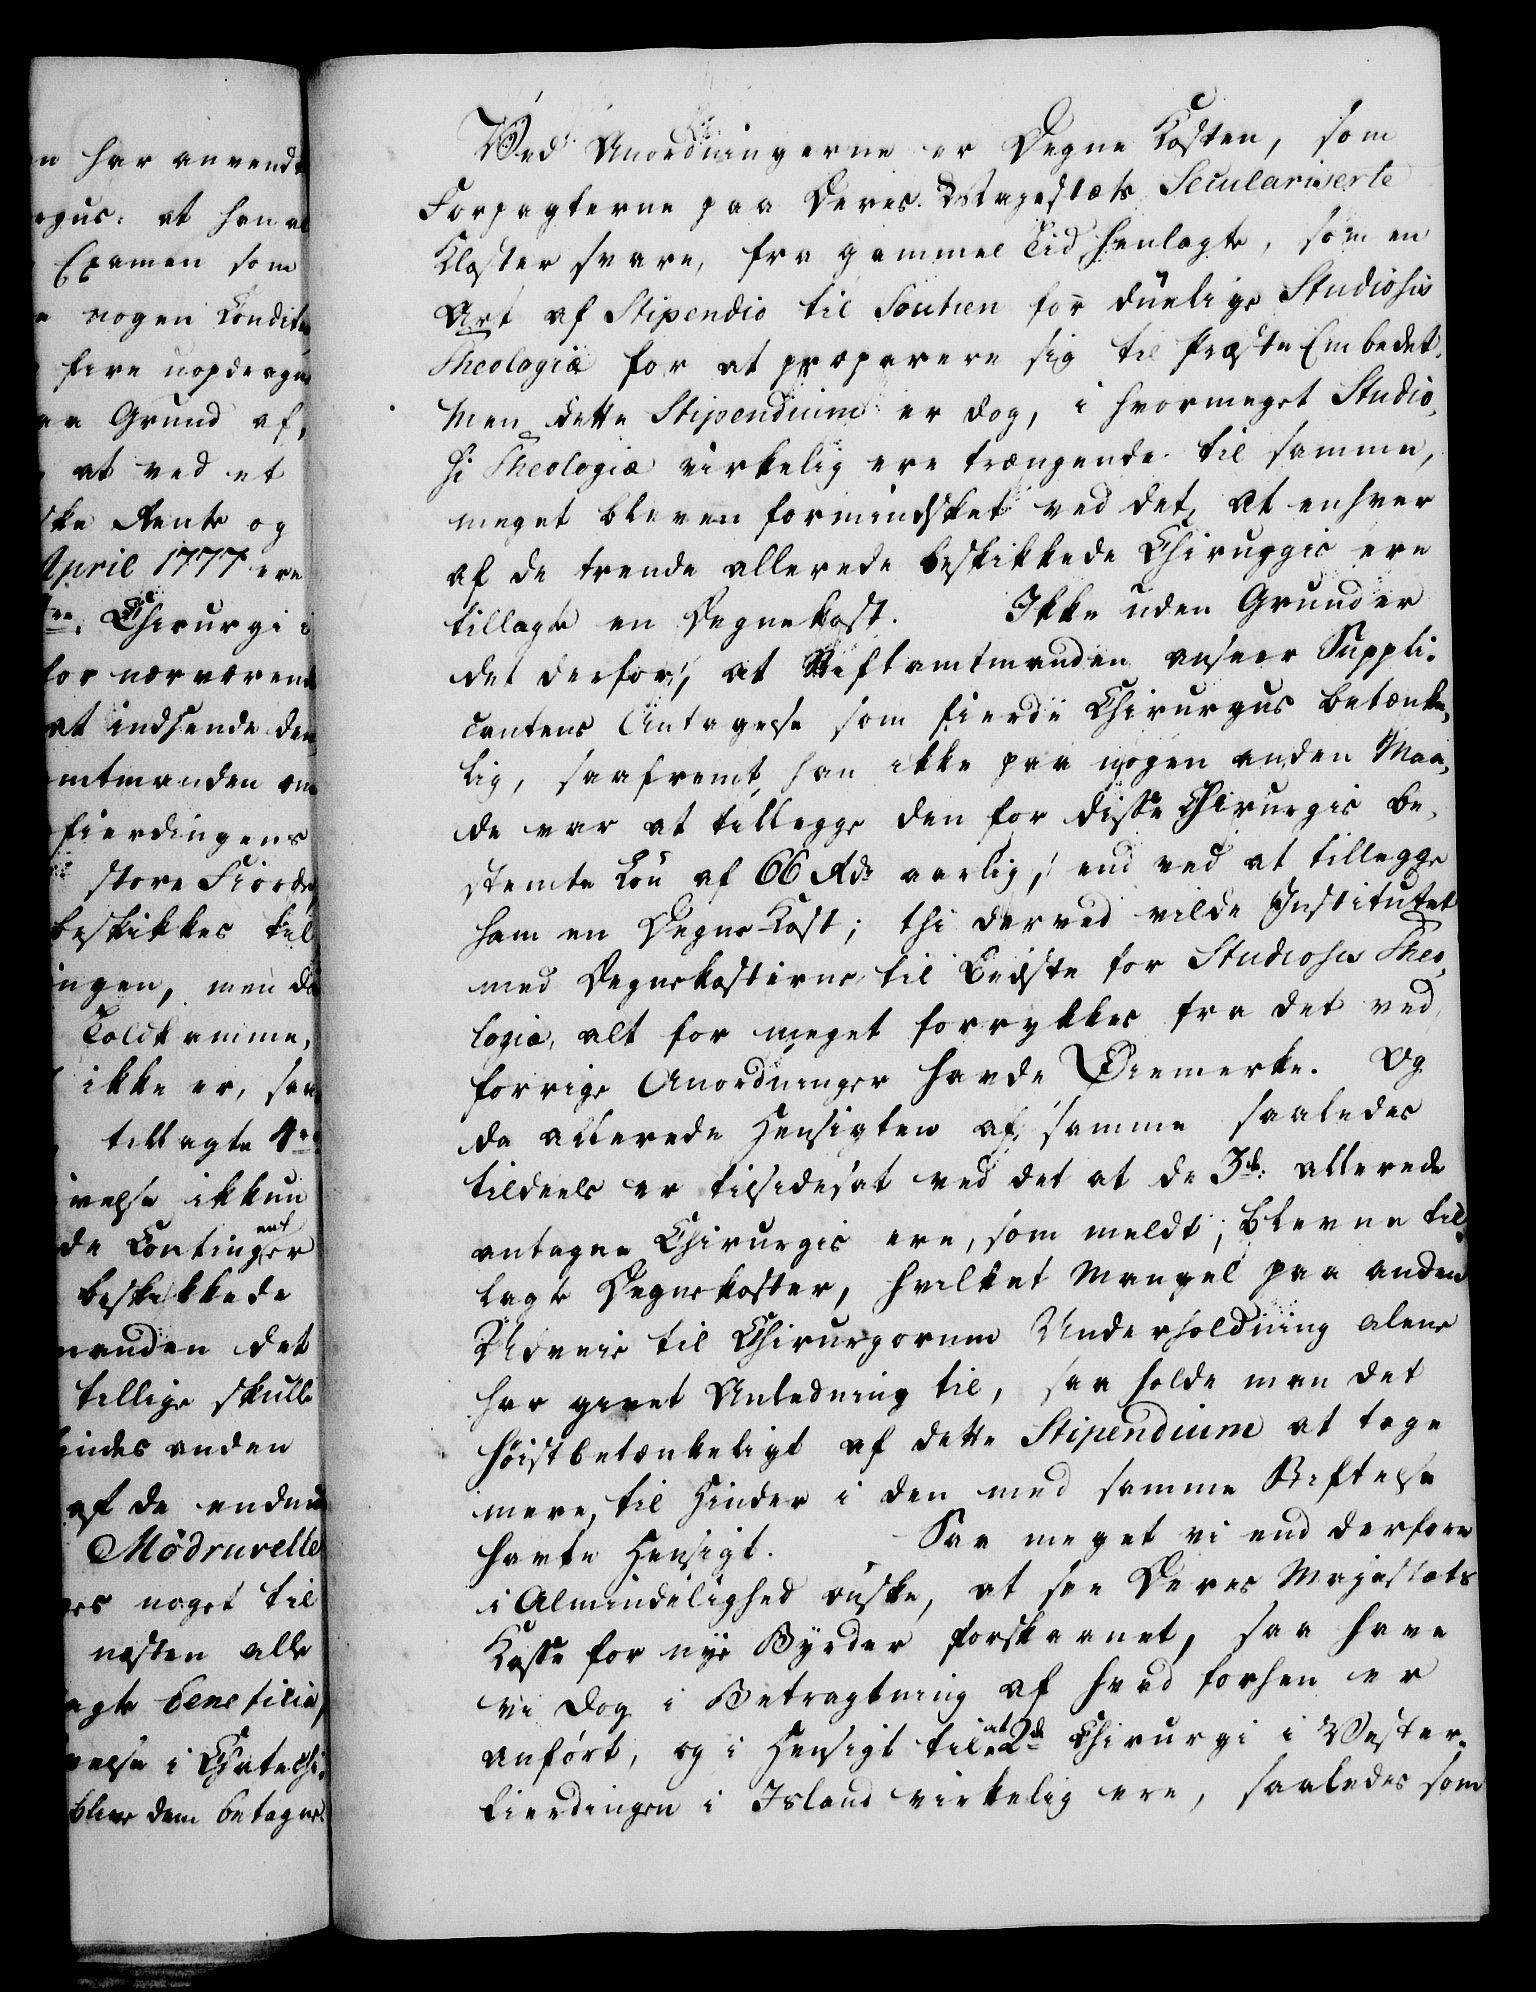 n har anvendt
rgus: at han al
Examen som
nogen Condit
fire uopdragne
aa Grund af,
at ved et
ske Rente og
April 1777 ere
Chirurgi i
for nærværende
at indsende den
mtmanden om
fierdingens
store Fiorde
beskikkes til
ingen, men da
Toldkamme,
ikke er, saa
tillagte 4re
ivelse ikkun
de Contingent er
beskikkede
manden det
tillige skulle
findes anden
af de endnu
Mödruvelle
noget til
næsten alle
agte beneficia,
else i Chatechi-
blive dem betagne
Ved Anordningerne er Degne Kosten, som
Forpagterne paa Deres Majestæts Seculariserte
Kloster svare, fra gammel Tid henlagt, som en
Art af Stipendio til Soutien for duelige Studiosis
Theologiæ for at præparere sig til Præste Embedet.
Men dette Stipendium er dog, i hvormeget Studio-
si Theologiæ virkelig ere trængende til samme,
meget bleven formindsket ved det, at enhver
af de trende allerede beskikkede Chirurgis ere
tillagt en Degnekost. Ikke uden Grund er
det derfor, at Stiftamtmanden anseer Suppli-
cantens Antagelse som fierde Chirurgus betænke-
lig, saafremt han ikke paa nogen anden Maa-
de var at tillegge den for disse Chirurgis be-
stemte Lön af 66 Rdr aarlig, end ved at tillegge
ham en Degne-Kost; thi derved vilde Institutet
med Degnekosterne til Bedste for Studiosis Theo-
logiæ, alt for meget forrykkes fra det ved
forrige Anordninger havde Øiemerke. Og
da allerede Hensigten af samme saaledes
tildeels er tilsidesat ved det at de 3de allerede
antagne Chirurgis ere, som meldt, blevne til-
lagte Degnekoster, hvilket Mangel paa anden
Udveie til Chirurgorum Underholdning alene
har givet Anledning til, saa holde man det
höistbetænkeligt af dette Stipendium at tage
mere, til Hinder i den med samme Stiftelse
havte Hensigt. Saa meget vi end derfore
i Almindelighed önske, at see Deres Majestæts
Kasse for nye Byrder forskaanet, saa have
vi dog i Betragtning af hvad forhen er
anfört, og i Hensigt til at 2de Chirurgi i Vester-
Fierdingen i Island virkelig ere, saaledes som